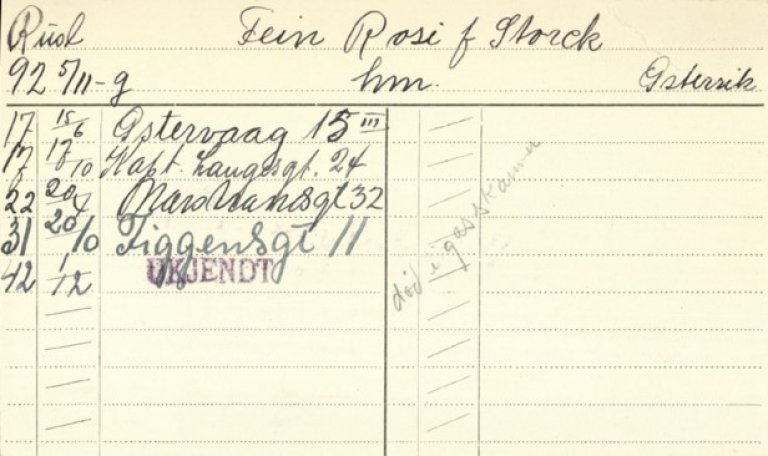 Rusl Fein Rosi f Storck
92 5/11-g hm. Østerrik
17 15/6 Østervaag 15 III
17 17/10 Kapt. Langesgt. 24
22 20/4 Marstrandsgt 32
31 20/10 Tiggensgt 11
42 1/12 UKJENDT
død i gasskammer